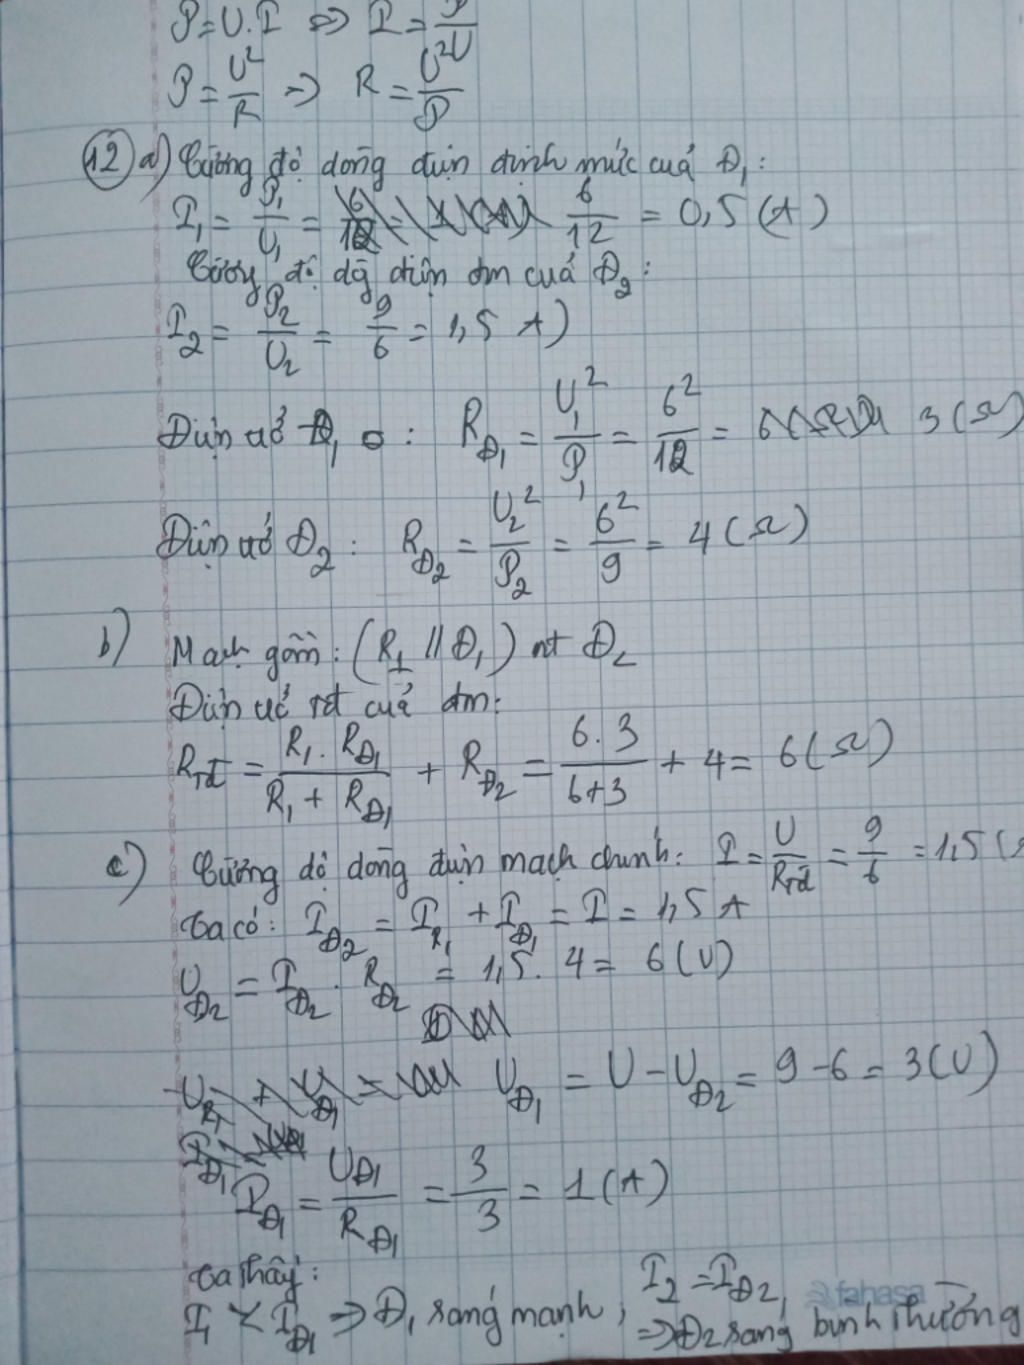 P = U.I => I = P/U
P = U²/R => R = U²/P
12) a) Cường độ dòng điện định mức cuả Đ₁:
I₁ = P₁/U₁ = 6/12 = 0,5 (A)
Cường độ dg điện đm cuả Đ₂:
I₂ = P₂/U₂ = 9/6 = 1,5 A)
Điện trở Đ₁: R_Đ₁ = U₁²/P₁ = 6²/12 = 3 (Ω)
Điện trở Đ₂: R_Đ₂ = U₂²/P₂ = 6²/9 = 4 (Ω)
b) Mạch gồm: (R₁ // Đ₁) nt Đ₂
Điện trở tđ cuả đm:
R_tđ = R₁.R_Đ₁/(R₁ + R_Đ₁) + R_Đ₂ = 6.3/(6+3) + 4 = 6 (Ω)
c) Cường độ dòng điện mạch chính: I = U/R_tđ = 9/6 = 1,5 (
Ta có: I_Đ₂ = I_R₁ + I_Đ₁ = I = 1,5 A
U_Đ₂ = I_Đ₂ . R_Đ₂ = 1,5. 4 = 6 (V)
U_Đ₁ = U - U_Đ₂ = 9 - 6 = 3 (V)
I_Đ₁ = U_Đ₁/R_Đ₁ = 3/3 = 1 (A)
Ta thấy:
I₁ < I_Đ₁ => Đ₁ sáng mạnh, I₂ = I_Đ₂,
=> Đ₂ sáng bình thường
fahasa